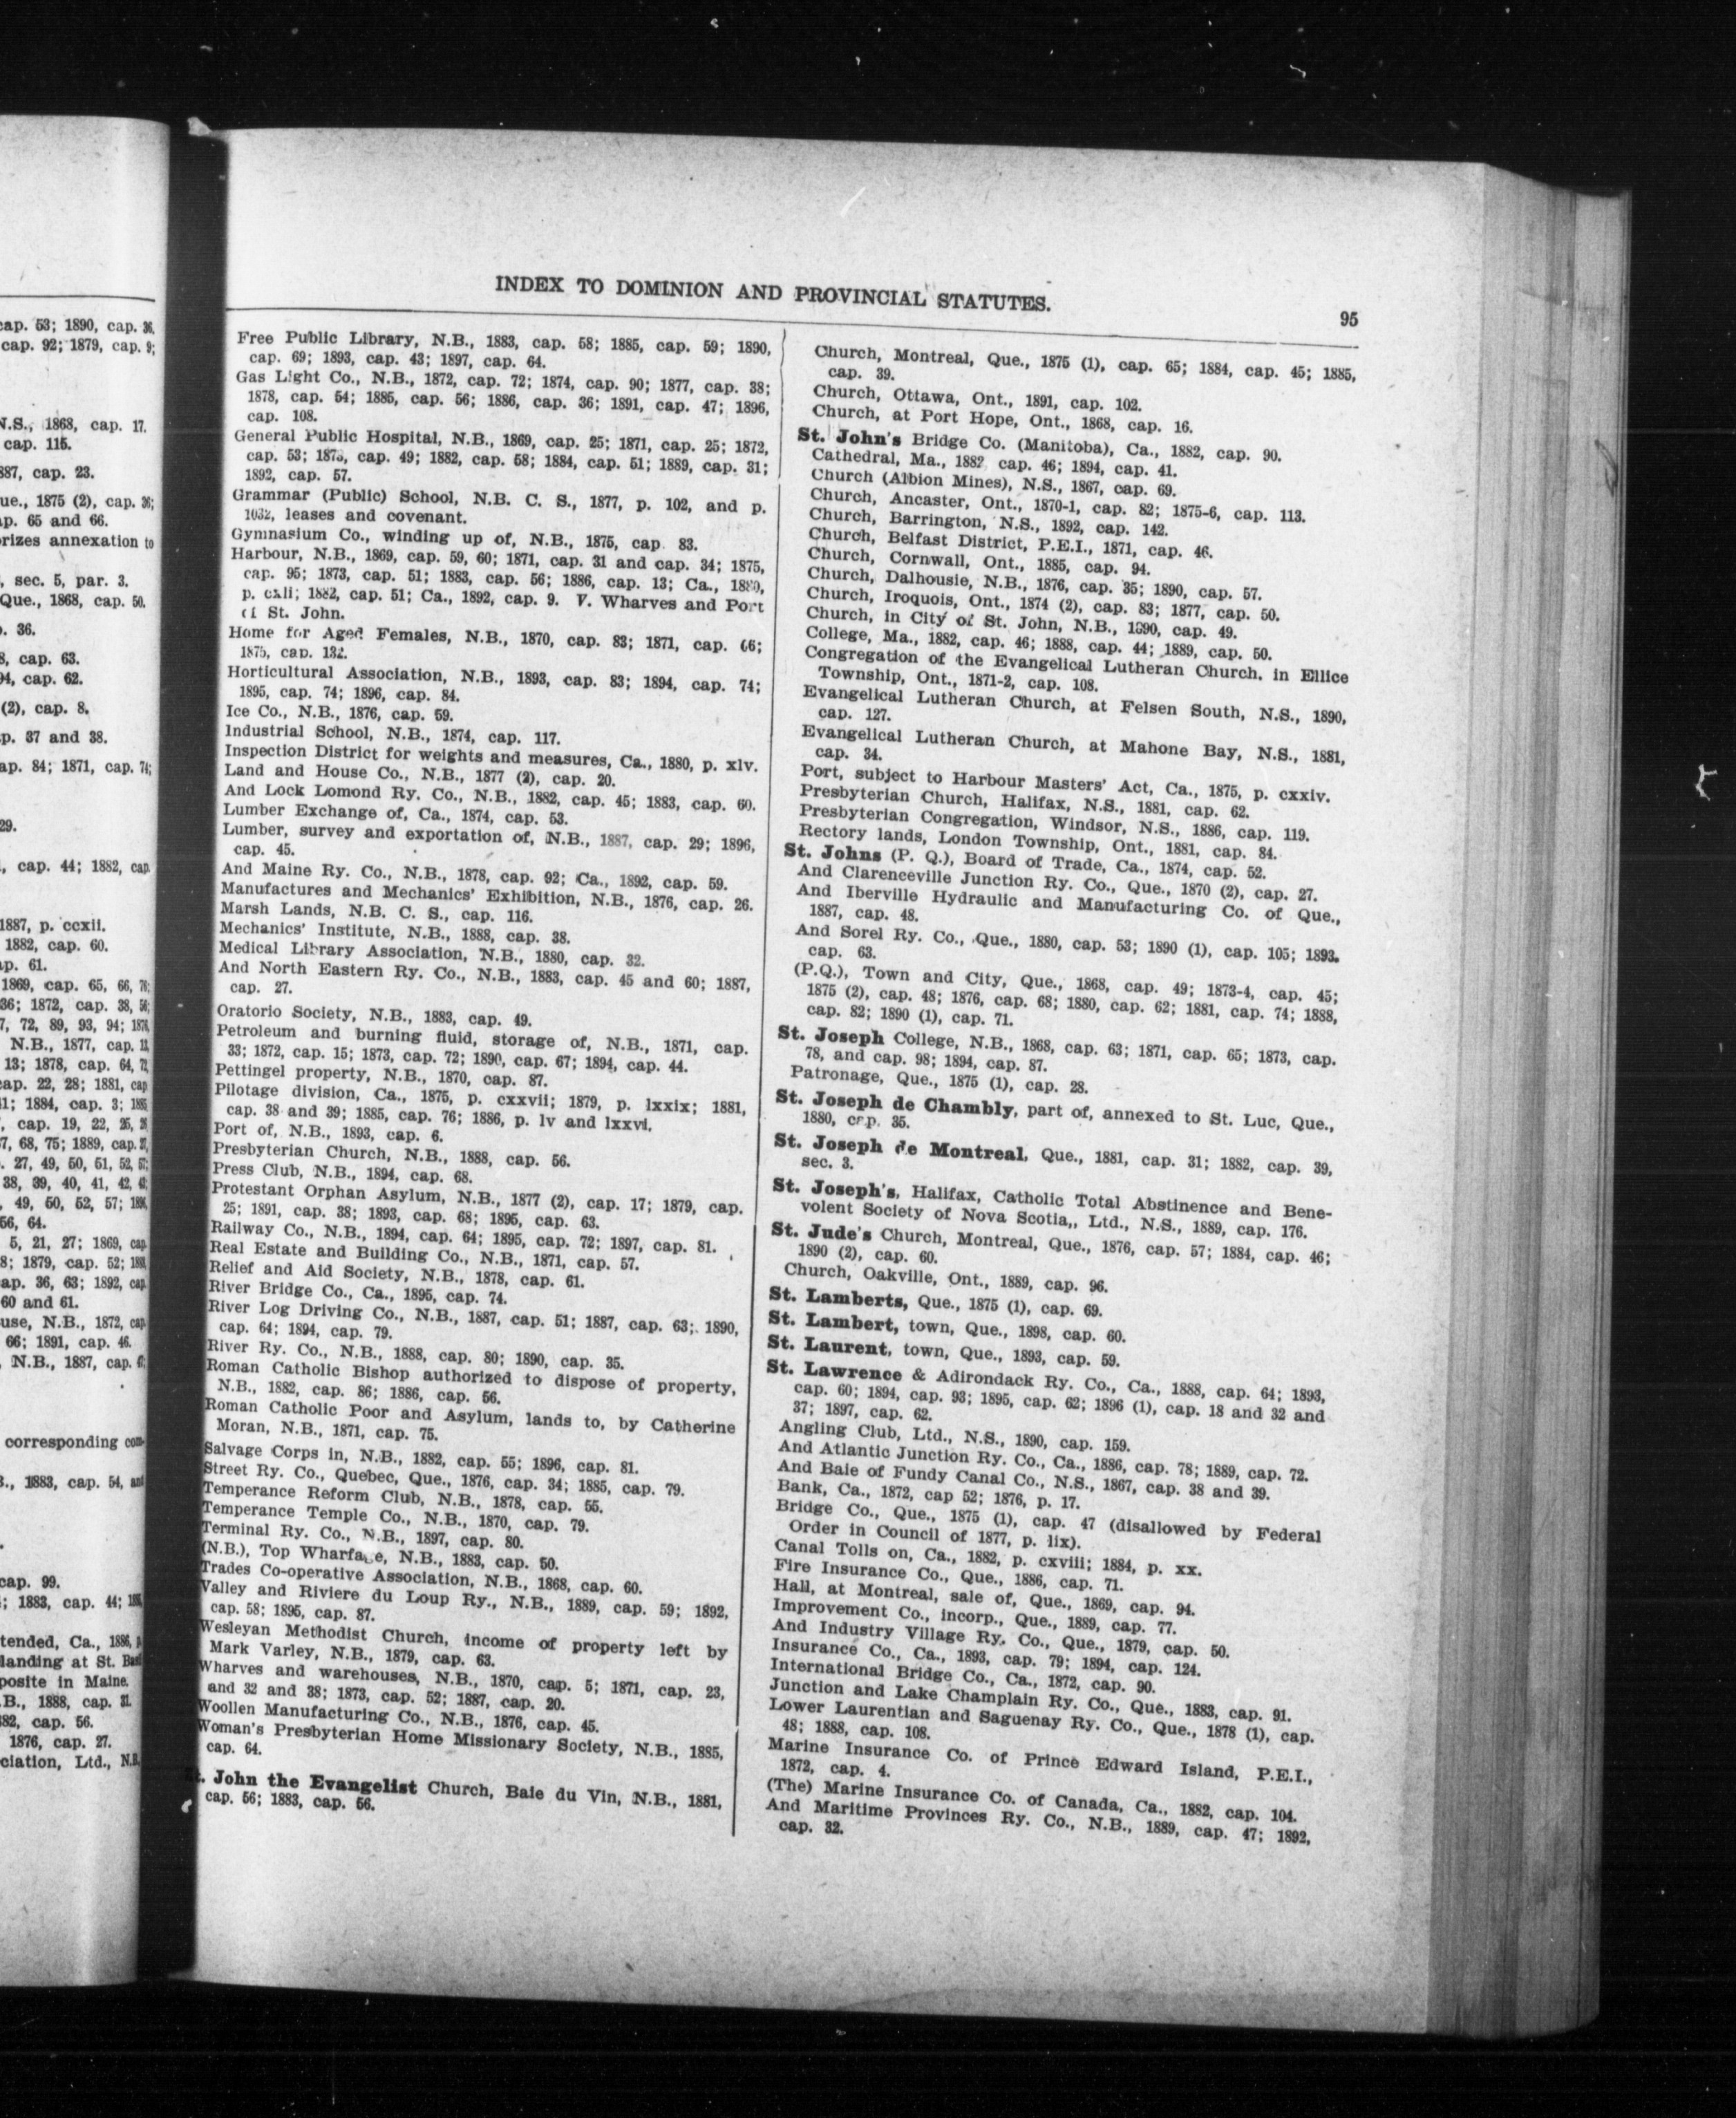 cap. 53; 1890, cap. 36.
cap. 92; 1879, cap. 9;
N.S., 1868, cap. 17.
cap. 115.
887, cap. 23.
ue., 1875 (2), cap. 36;
p. 65 and 66.
orizes annexation to
, sec. 5, par. 3.
Que., 1868, cap. 50.
. 36.
8, cap. 63.
94, cap. 62.
(2), cap. 8.
p. 37 and 38.
ap. 84; 1871, cap. 74;
29.
, cap. 44; 1882, cap.
1887, p. ccxii.
1882, cap. 60.
ap. 61.
1869, cap. 65, 66, 76;
36; 1872, cap. 38, 56;
7, 72, 89, 93, 94; 1876,
N.B., 1877, cap. 12,
13; 1878, cap. 64, 72,
cap. 22, 28; 1881, cap.
41; 1884, cap. 3; 1885,
, cap. 19, 22, 25, 26
67, 68, 75; 1889, cap. 27,
. 27, 49, 50, 51, 52, 57;
38, 39, 40, 41, 42, 43;
, 49, 50, 52, 57; 1896,
56, 64.
5, 21, 27; 1869, cap.
8; 1879, cap. 52; 1883,
ap. 36, 63; 1892, cap.
60 and 61.
use, N.B., 1872, cap.
66; 1891, cap. 46.
, N.B., 1887, cap. 47;
corresponding com-
B., 1883, cap. 54, and
cap. 99.
; 1883, cap. 44; 1886,
tended, Ca., 1886, p.
landing at St. Basil
posite in Maine.
.B., 1888, cap. 31.
882, cap. 56.
1876, cap. 27.
ciation, Ltd., N.B.
INDEX TO DOMINION AND PROVINCIAL STATUTES.
95
Free Public Library, N.B., 1883, cap. 58; 1885, cap. 59; 1890,
cap. 69; 1893, cap. 43; 1897, cap. 64.
Gas Light Co., N.B., 1872, cap. 72; 1874, cap. 90; 1877, cap. 38;
1878, cap. 54; 1885, cap. 56; 1886, cap. 36; 1891, cap. 47; 1896,
cap. 108.
General Public Hospital, N.B., 1869, cap. 25; 1871, cap. 25; 1872,
cap. 53; 1873, cap. 49; 1882, cap. 58; 1884, cap. 51; 1889, cap. 31;
1892, cap. 57.
Grammar (Public) School, N.B. C. S., 1877, p. 102, and p.
1032, leases and covenant.
Gymnasium Co., winding up of, N.B., 1875, cap. 83.
Harbour, N.B., 1869, cap. 59, 60; 1871, cap. 31 and cap. 34; 1875,
cap. 95; 1873, cap. 51; 1883, cap. 56; 1886, cap. 13; Ca., 1880,
p. cxli; 1882, cap. 51; Ca., 1892, cap. 9. V. Wharves and Port
of St. John.
Home for Aged Females, N.B., 1870, cap. 83; 1871, cap. 66;
1875, cap. 132.
Horticultural Association, N.B., 1893, cap. 83; 1894, cap. 74;
1895, cap. 74; 1896, cap. 84.
Ice Co., N.B., 1876, cap. 59.
Industrial School, N.B., 1874, cap. 117.
Inspection District for weights and measures, Ca., 1880, p. xlv.
Land and House Co., N.B., 1877 (2), cap. 20.
And Lock Lomond Ry. Co., N.B., 1882, cap. 45; 1883, cap. 60.
Lumber Exchange of, Ca., 1874, cap. 53.
Lumber, survey and exportation of, N.B., 1887, cap. 29; 1896,
cap. 45.
And Maine Ry. Co., N.B., 1878, cap. 92; Ca., 1892, cap. 59.
Manufactures and Mechanics' Exhibition, N.B., 1876, cap. 26.
Marsh Lands, N.B. C. S., cap. 116.
Mechanics' Institute, N.B., 1888, cap. 38.
Medical Library Association, N.B., 1880, cap. 32.
And North Eastern Ry. Co., N.B., 1883, cap. 45 and 60; 1887,
cap. 27.
Oratorio Society, N.B., 1883, cap. 49.
Petroleum and burning fluid, storage of, N.B., 1871, cap.
33; 1872, cap. 15; 1873, cap. 72; 1890, cap. 67; 1894, cap. 44.
Pettingel property, N.B., 1870, cap. 87.
Pilotage division, Ca., 1875, p. cxxvii; 1879, p. lxxix; 1881,
cap. 38 and 39; 1885, cap. 76; 1886, p. lv and lxxvi.
Port of, N.B., 1893, cap. 6.
Presbyterian Church, N.B., 1888, cap. 56.
Press Club, N.B., 1894, cap. 68.
Protestant Orphan Asylum, N.B., 1877 (2), cap. 17; 1879, cap.
25; 1891, cap. 38; 1893, cap. 68; 1895, cap. 63.
Railway Co., N.B., 1894, cap. 64; 1895, cap. 72; 1897, cap. 81.
Real Estate and Building Co., N.B., 1871, cap. 57.
Relief and Aid Society, N.B., 1878, cap. 61.
River Bridge Co., Ca., 1895, cap. 74.
River Log Driving Co., N.B., 1887, cap. 51; 1887, cap. 63; 1890,
cap. 64; 1894, cap. 79.
River Ry. Co., N.B., 1888, cap. 80; 1890, cap. 35.
Roman Catholic Bishop authorized to dispose of property,
N.B., 1882, cap. 86; 1886, cap. 56.
Roman Catholic Poor and Asylum, lands to, by Catherine
Moran, N.B., 1871, cap. 75.
Salvage Corps in, N.B., 1882, cap. 55; 1896, cap. 81.
Street Ry. Co., Quebec, Que., 1876, cap. 34; 1885, cap. 79.
Temperance Reform Club, N.B., 1878, cap. 55.
Temperance Temple Co., N.B., 1870, cap. 79.
Terminal Ry. Co., N.B., 1897, cap. 80.
(N.B.), Top Wharfage, N.B., 1883, cap. 50.
Trades Co-operative Association, N.B., 1868, cap. 60.
Valley and Riviere du Loup Ry., N.B., 1889, cap. 59; 1892,
cap. 58; 1895, cap. 87.
Wesleyan Methodist Church, income of property left by
Mark Varley, N.B., 1879, cap. 63.
Wharves and warehouses, N.B., 1870, cap. 5; 1871, cap. 23,
and 32 and 38; 1873, cap. 52; 1887, cap. 20.
Woollen Manufacturing Co., N.B., 1876, cap. 45.
Woman's Presbyterian Home Missionary Society, N.B., 1885,
cap. 64.
St. John the Evangelist Church, Baie du Vin, N.B., 1881,
cap. 56; 1883, cap. 56.
Church, Montreal, Que., 1875 (1), cap. 65; 1884, cap. 45; 1885,
cap. 39.
Church, Ottawa, Ont., 1891, cap. 102.
Church, at Port Hope, Ont., 1868, cap. 16.
St. John's Bridge Co. (Manitoba), Ca., 1882, cap. 90.
Cathedral, Ma., 1882 cap. 46; 1894, cap. 41.
Church (Albion Mines), N.S., 1867, cap. 69.
Church, Ancaster, Ont., 1870-1, cap. 82; 1875-6, cap. 113.
Church, Barrington, N.S., 1892, cap. 142.
Church, Belfast District, P.E.I., 1871, cap. 46.
Church, Cornwall, Ont., 1885, cap. 94.
Church, Dalhousie, N.B., 1876, cap. 35; 1890, cap. 57.
Church, Iroquois, Ont., 1874 (2), cap. 83; 1877, cap. 50.
Church, in City of St. John, N.B., 1890, cap. 49.
College, Ma., 1882, cap. 46; 1888, cap. 44; 1889, cap. 50.
Congregation of the Evangelical Lutheran Church, in Ellice
Township, Ont., 1871-2, cap. 108.
Evangelical Lutheran Church, at Felsen South, N.S., 1890,
cap. 127.
Evangelical Lutheran Church, at Mahone Bay, N.S., 1881,
cap. 34.
Port, subject to Harbour Masters' Act, Ca., 1875, p. cxxiv.
Presbyterian Church, Halifax, N.S., 1881, cap. 62.
Presbyterian Congregation, Windsor, N.S., 1886, cap. 119.
Rectory lands, London Township, Ont., 1881, cap. 84.
St. Johns (P. Q.), Board of Trade, Ca., 1874, cap. 52.
And Clarenceville Junction Ry. Co., Que., 1870 (2), cap. 27.
And Iberville Hydraulic and Manufacturing Co. of Que.,
1887, cap. 48.
And Sorel Ry. Co., Que., 1880, cap. 53; 1890 (1), cap. 105; 1893.
cap. 63.
(P.Q.), Town and City, Que., 1868, cap. 49; 1873-4, cap. 45;
1875 (2), cap. 48; 1876, cap. 68; 1880, cap. 62; 1881, cap. 74; 1888,
cap. 82; 1890 (1), cap. 71.
St. Joseph College, N.B., 1868, cap. 63; 1871, cap. 65; 1873, cap.
78, and cap. 98; 1894, cap. 87.
Patronage, Que., 1875 (1), cap. 28.
St. Joseph de Chambly, part of, annexed to St. Luc, Que.,
1880, cap. 35.
St. Joseph de Montreal, Que., 1881, cap. 31; 1882, cap. 39,
sec. 3.
St. Joseph's, Halifax, Catholic Total Abstinence and Bene-
volent Society of Nova Scotia,, Ltd., N.S., 1889, cap. 176.
St. Jude's Church, Montreal, Que., 1876, cap. 57; 1884, cap. 46;
1890 (2), cap. 60.
Church, Oakville, Ont., 1889, cap. 96.
St. Lamberts, Que., 1875 (1), cap. 69.
St. Lambert, town, Que., 1898, cap. 60.
St. Laurent, town, Que., 1893, cap. 59.
St. Lawrence & Adirondack Ry. Co., Ca., 1888, cap. 64; 1893,
cap. 60; 1894, cap. 93; 1895, cap. 62; 1896 (1), cap. 18 and 32 and
37; 1897, cap. 62.
Angling Club, Ltd., N.S., 1890, cap. 159.
And Atlantic Junction Ry. Co., Ca., 1886, cap. 78; 1889, cap. 72.
And Baie of Fundy Canal Co., N.S., 1867, cap. 38 and 39.
Bank, Ca., 1872, cap 52; 1876, p. 17.
Bridge Co., Que., 1875 (1), cap. 47 (disallowed by Federal
Order in Council of 1877, p. lix).
Canal Tolls on, Ca., 1882, p. cxviii; 1884, p. xx.
Fire Insurance Co., Que., 1886, cap. 71.
Hall, at Montreal, sale of, Que., 1869, cap. 94.
Improvement Co., incorp., Que., 1889, cap. 77.
And Industry Village Ry. Co., Que., 1879, cap. 50.
Insurance Co., Ca., 1893, cap. 79; 1894, cap. 124.
International Bridge Co., Ca., 1872, cap. 90.
Junction and Lake Champlain Ry. Co., Que., 1883, cap. 91.
Lower Laurentian and Saguenay Ry. Co., Que., 1878 (1), cap.
48; 1888, cap. 108.
Marine Insurance Co. of Prince Edward Island, P.E.I.,
1872, cap. 4.
(The) Marine Insurance Co. of Canada, Ca., 1882, cap. 104.
And Maritime Provinces Ry. Co., N.B., 1889, cap. 47; 1892,
cap. 32.